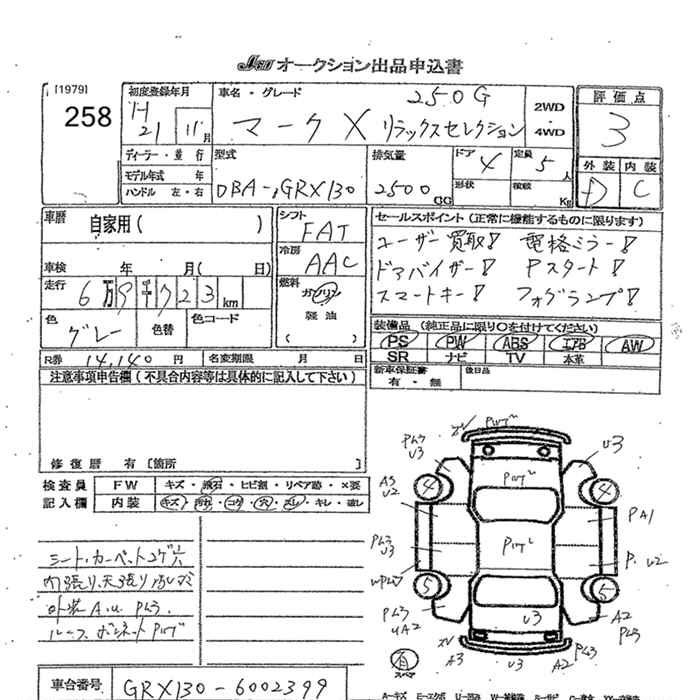 JAA オークション出品申込書
[1979]
258
初度登録年月
H 21 11月
車名・グレード
250G
マークX リラックスセレクション
2WD
4WD
評価点
3
外装 内装
D C
ディーラー・並行
モデル年式 年
ハンドル 左・右
型式
DBA-GRX130
排気量
2500 CC
ドア 4
形状
定員 5人
積載 Kg
車歴 自家用( )
シフト
FAT
冷房
AAC
燃料
ガソリン
軽油
( )
セールスポイント(正常に機能するものに限ります)
ユーザー買取! 電格ミラー!
ドアバイザー! Pスタート!
スマートキー! フォグランプ!
車検 年 月( 日)
走行 6万9千723km
色 グレー
色替
色コード
装備品 (純正品に限り〇を付けてください)
PS PW ABS エアB AW
SR ナビ TV 本革
R券 14,140円 名変期限 月 日
新車保証書 有・無
後日品
注意事項申告欄(不具合内容等は具体的に記入して下さい)
修復歴 有〔箇所 〕
検査員 FW キズ・飛石・ヒビ割・リペア跡・×要
記入欄 内装 キズ・汚れ・コゲ・穴・スレ・キレ・破レ
シート・カーペットコゲ穴
内張り、天張り
外装A.U PL3.
ルーフ ボンネットPUゲ
PUゲ
PL3
U3
U3
PUゲ
4 4
A3
U2
PA1
PL3
U3
PUゲ
P. U2
5 5
PL3
UA2
U3
A2
PL3
有
スペア
A3
U3
A2
PL3
車台番号 GRX130-6002399